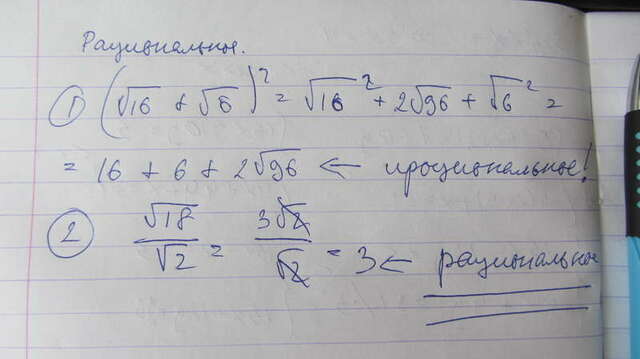 Рациональное.
① (√16 + √6)² = √16² + 2√96 + √6² =
= 16 + 6 + 2√96 ← ироциональное!
② √18/√2 = 3√2/√2 = 3 ← рациональное